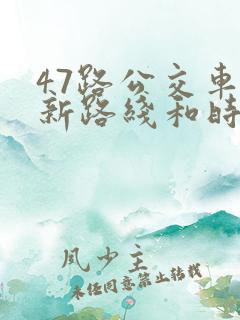 47路公交车
新路线和时
风少主
未经同意禁止转载